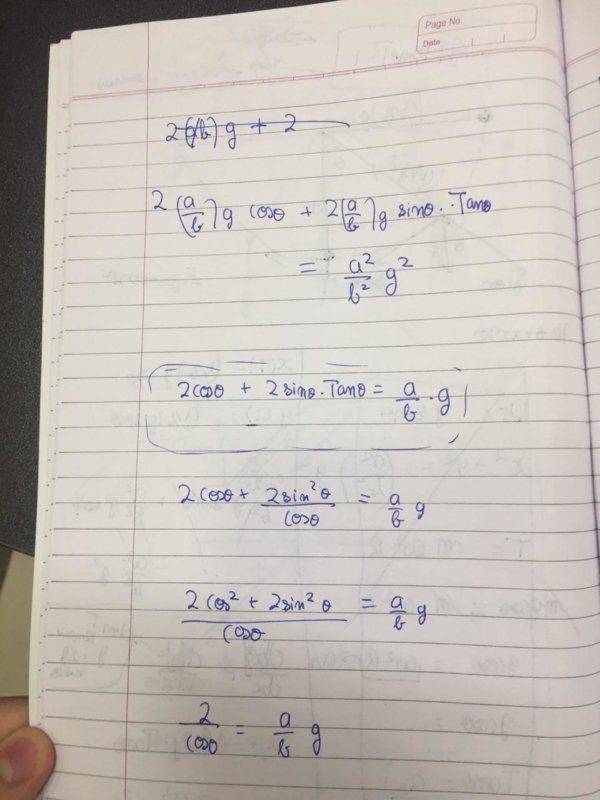 Page No.
Date
2(a/b)g + 2
2(a/b)g cosθ + 2(a/b)g sinθ · Tanθ
= a²/b² g²
2cosθ + 2sinθ · Tanθ = a/b · g
2cosθ + 2sin²θ/cosθ = a/b g
2cos² + 2sin²θ/cosθ = a/b g
2/cosθ = a/b g